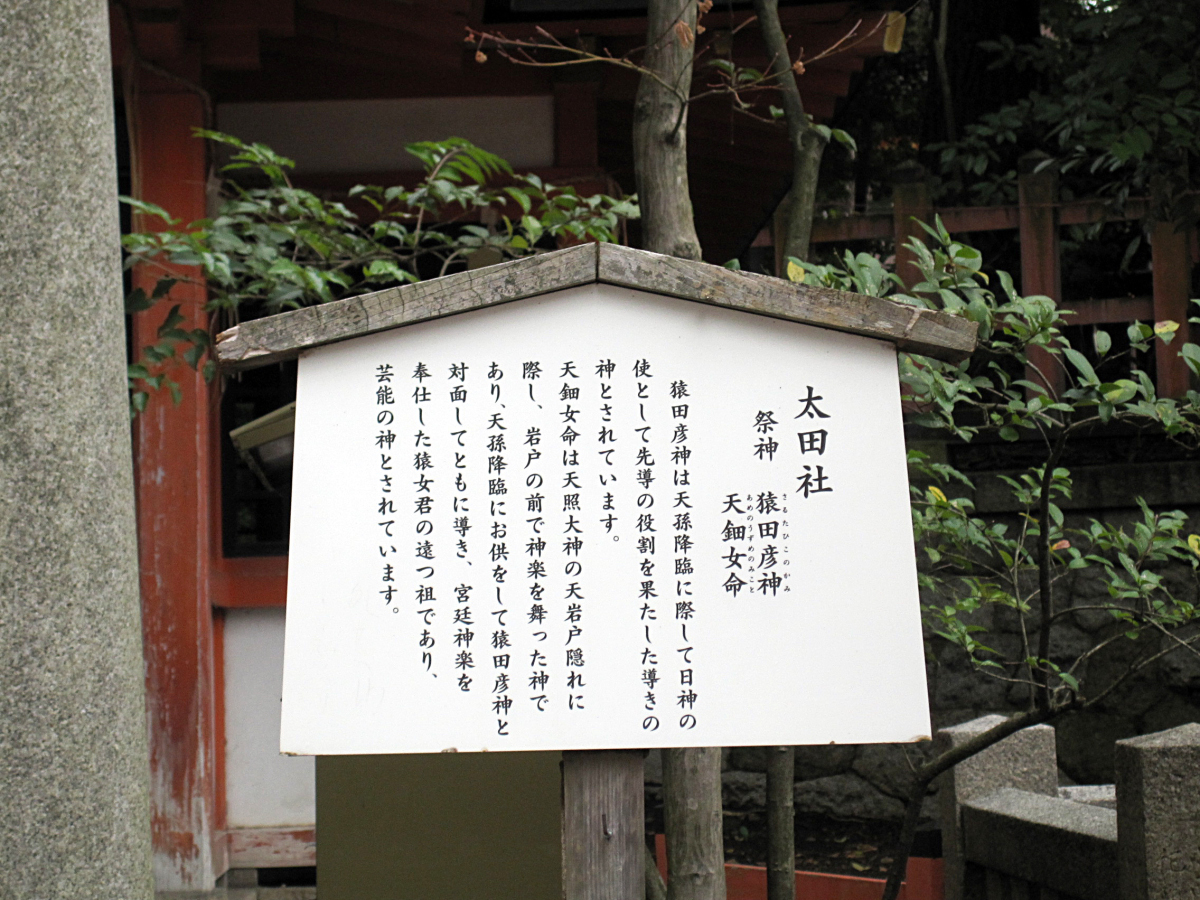 太田社
祭神 猿田彦神
さるたひこのかみ
天鈿女命
あめのうずめのみこと
猿田彦神は天孫降臨に際して日神の
使として先導の役割を果たした導きの
神とされています。
天鈿女命は天照大神の天岩戸隠れに
際し、岩戸の前で神楽を舞った神で
あり、天孫降臨にお供をして猿田彦神と
対面してともに導き、宮廷神楽を
奉仕した猿女君の遠つ祖であり、
芸能の神とされています。